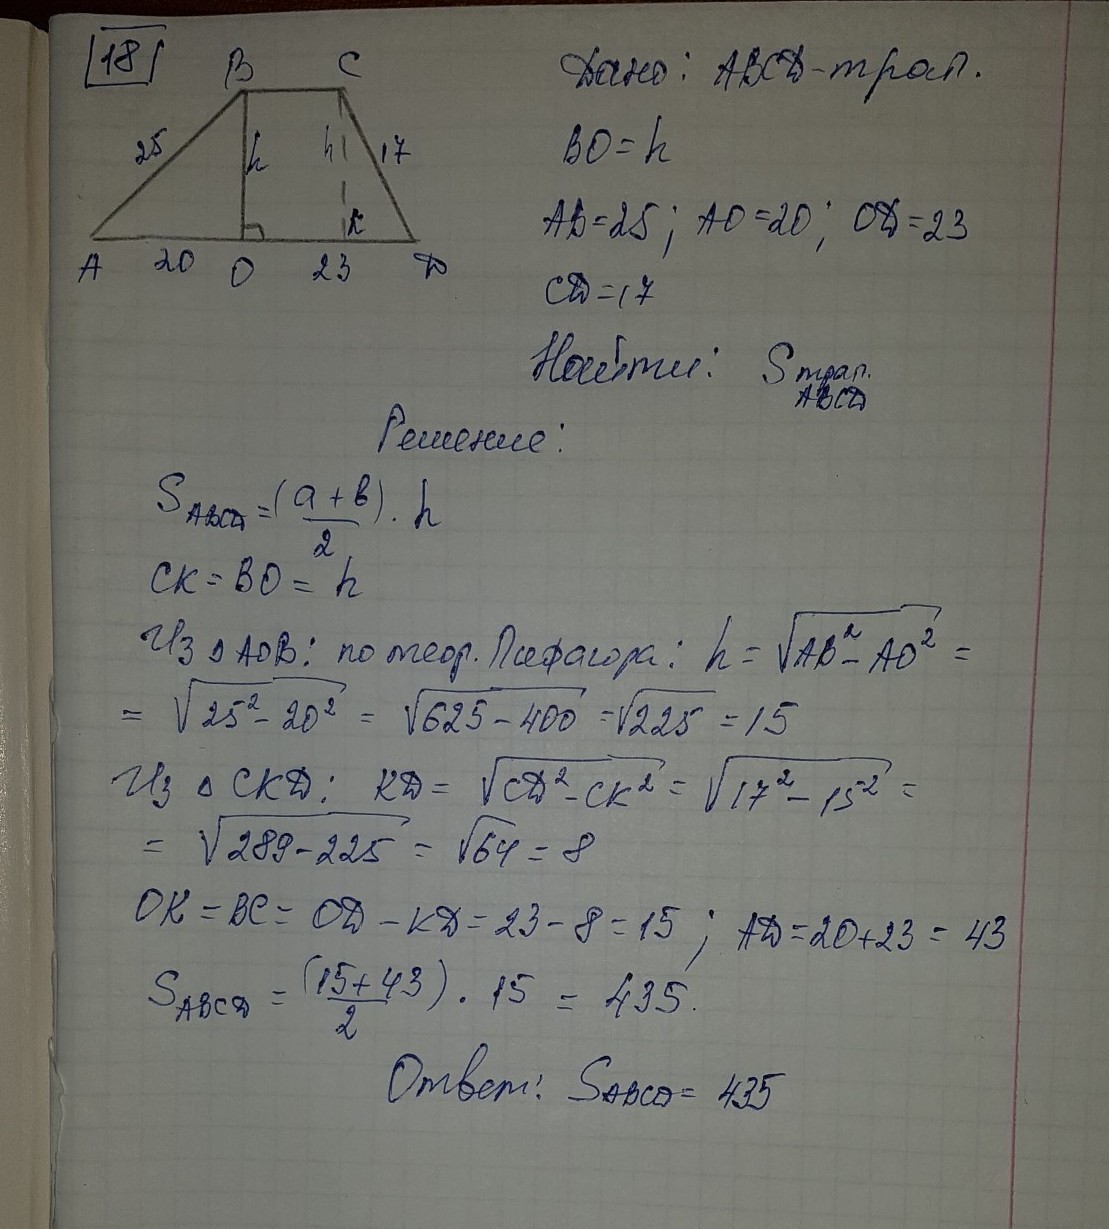 18
B C
25 h h 17
K
A 20 O 23 D
Дано: ABCD-трап.
BO = h
AB=25; AO=20; OD=23
CD=17
Найти: Sтрап. ABCD
Решение:
S_ABCD = (a + b / 2) · h
CK = BO = h
Из △AOB: по теор. Пифагора: h = √AB² - AO² =
= √25² - 20² = √625 - 400 = √225 = 15
Из △ CKD: KD = √CD² - CK² = √17² - 15² =
= √289 - 225 = √64 = 8
OK = BC = OD - KD = 23 - 8 = 15 ; AD = 20+23 = 43
S_ABCD = (15+43 / 2) · 15 = 435.
Ответ: S_ABCD = 435